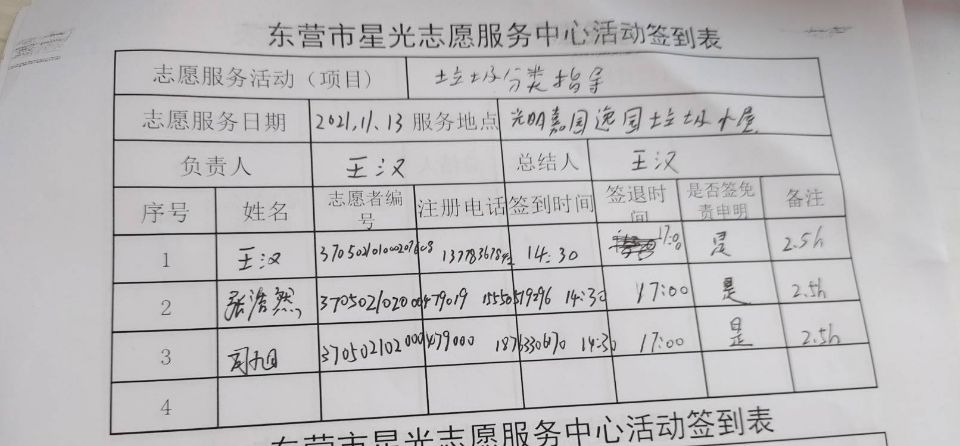 东营市星光志愿服务中心活动签到表
志愿服务活动（项目） 垃圾分类指导
志愿服务日期 2021.11.13 服务地点 光明嘉园逸园垃圾小屋
负责人 王汉 总结人 王汉
序号 姓名 志愿者编号 注册电话 签到时间 签退时间 是否签免责申明 备注
1 王汉 14:30 17:00 是 2.5h
2 张浩然 14:30 17:00 是 2.5h
3 14:30 17:00 是 2.5h
4
东营市星光志愿服务中心活动签到表